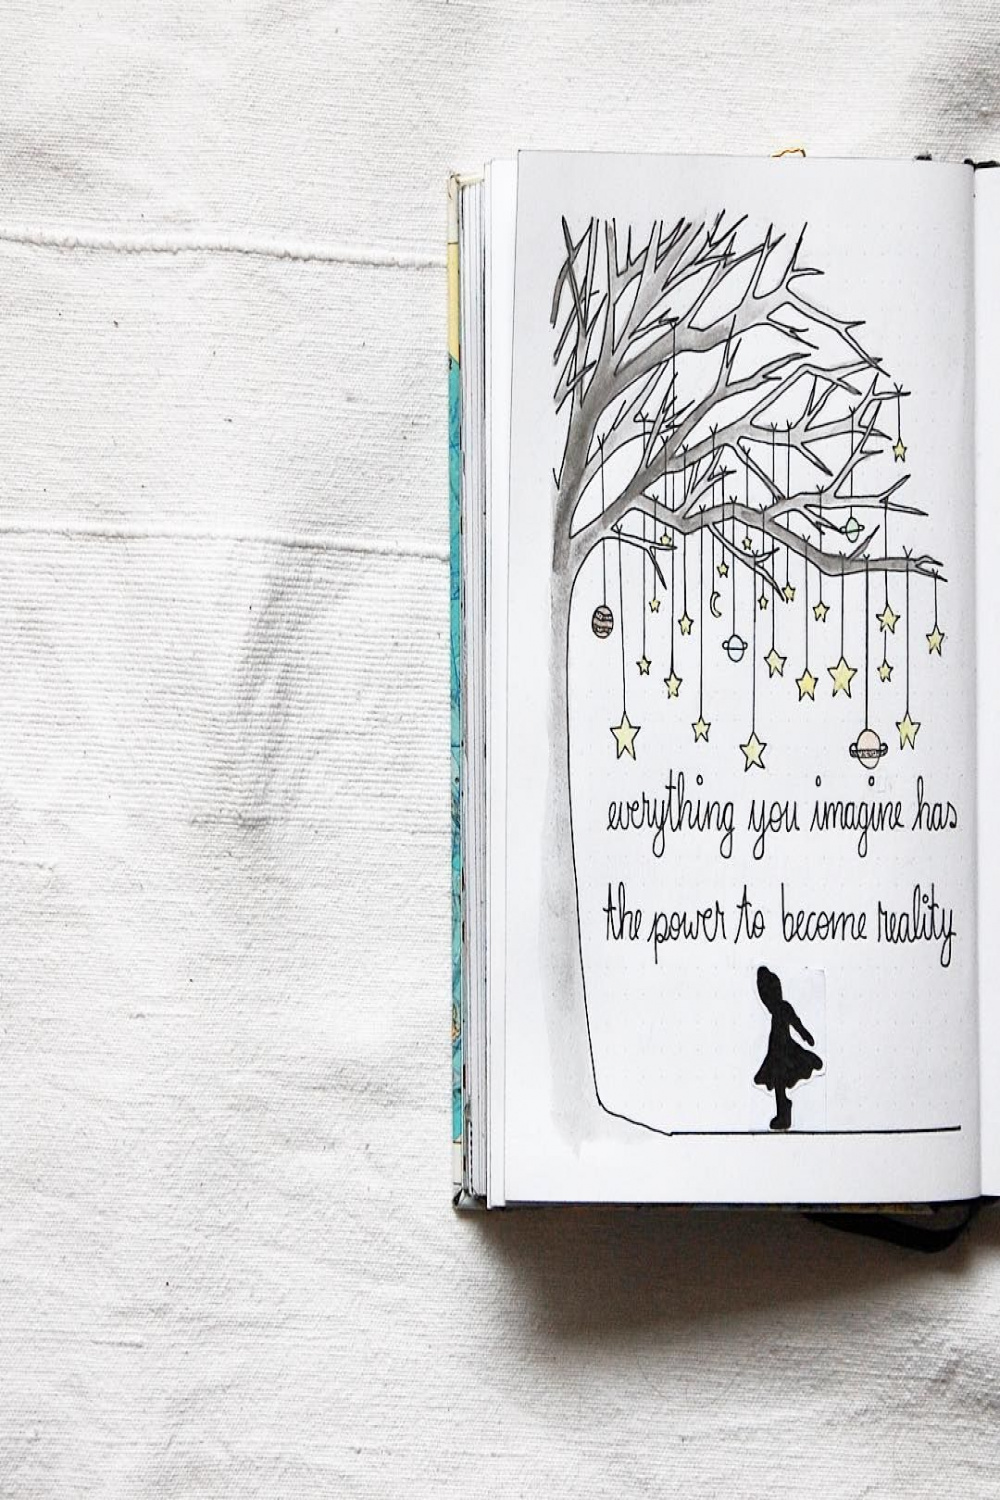 everything you imagine has
the power to become reality